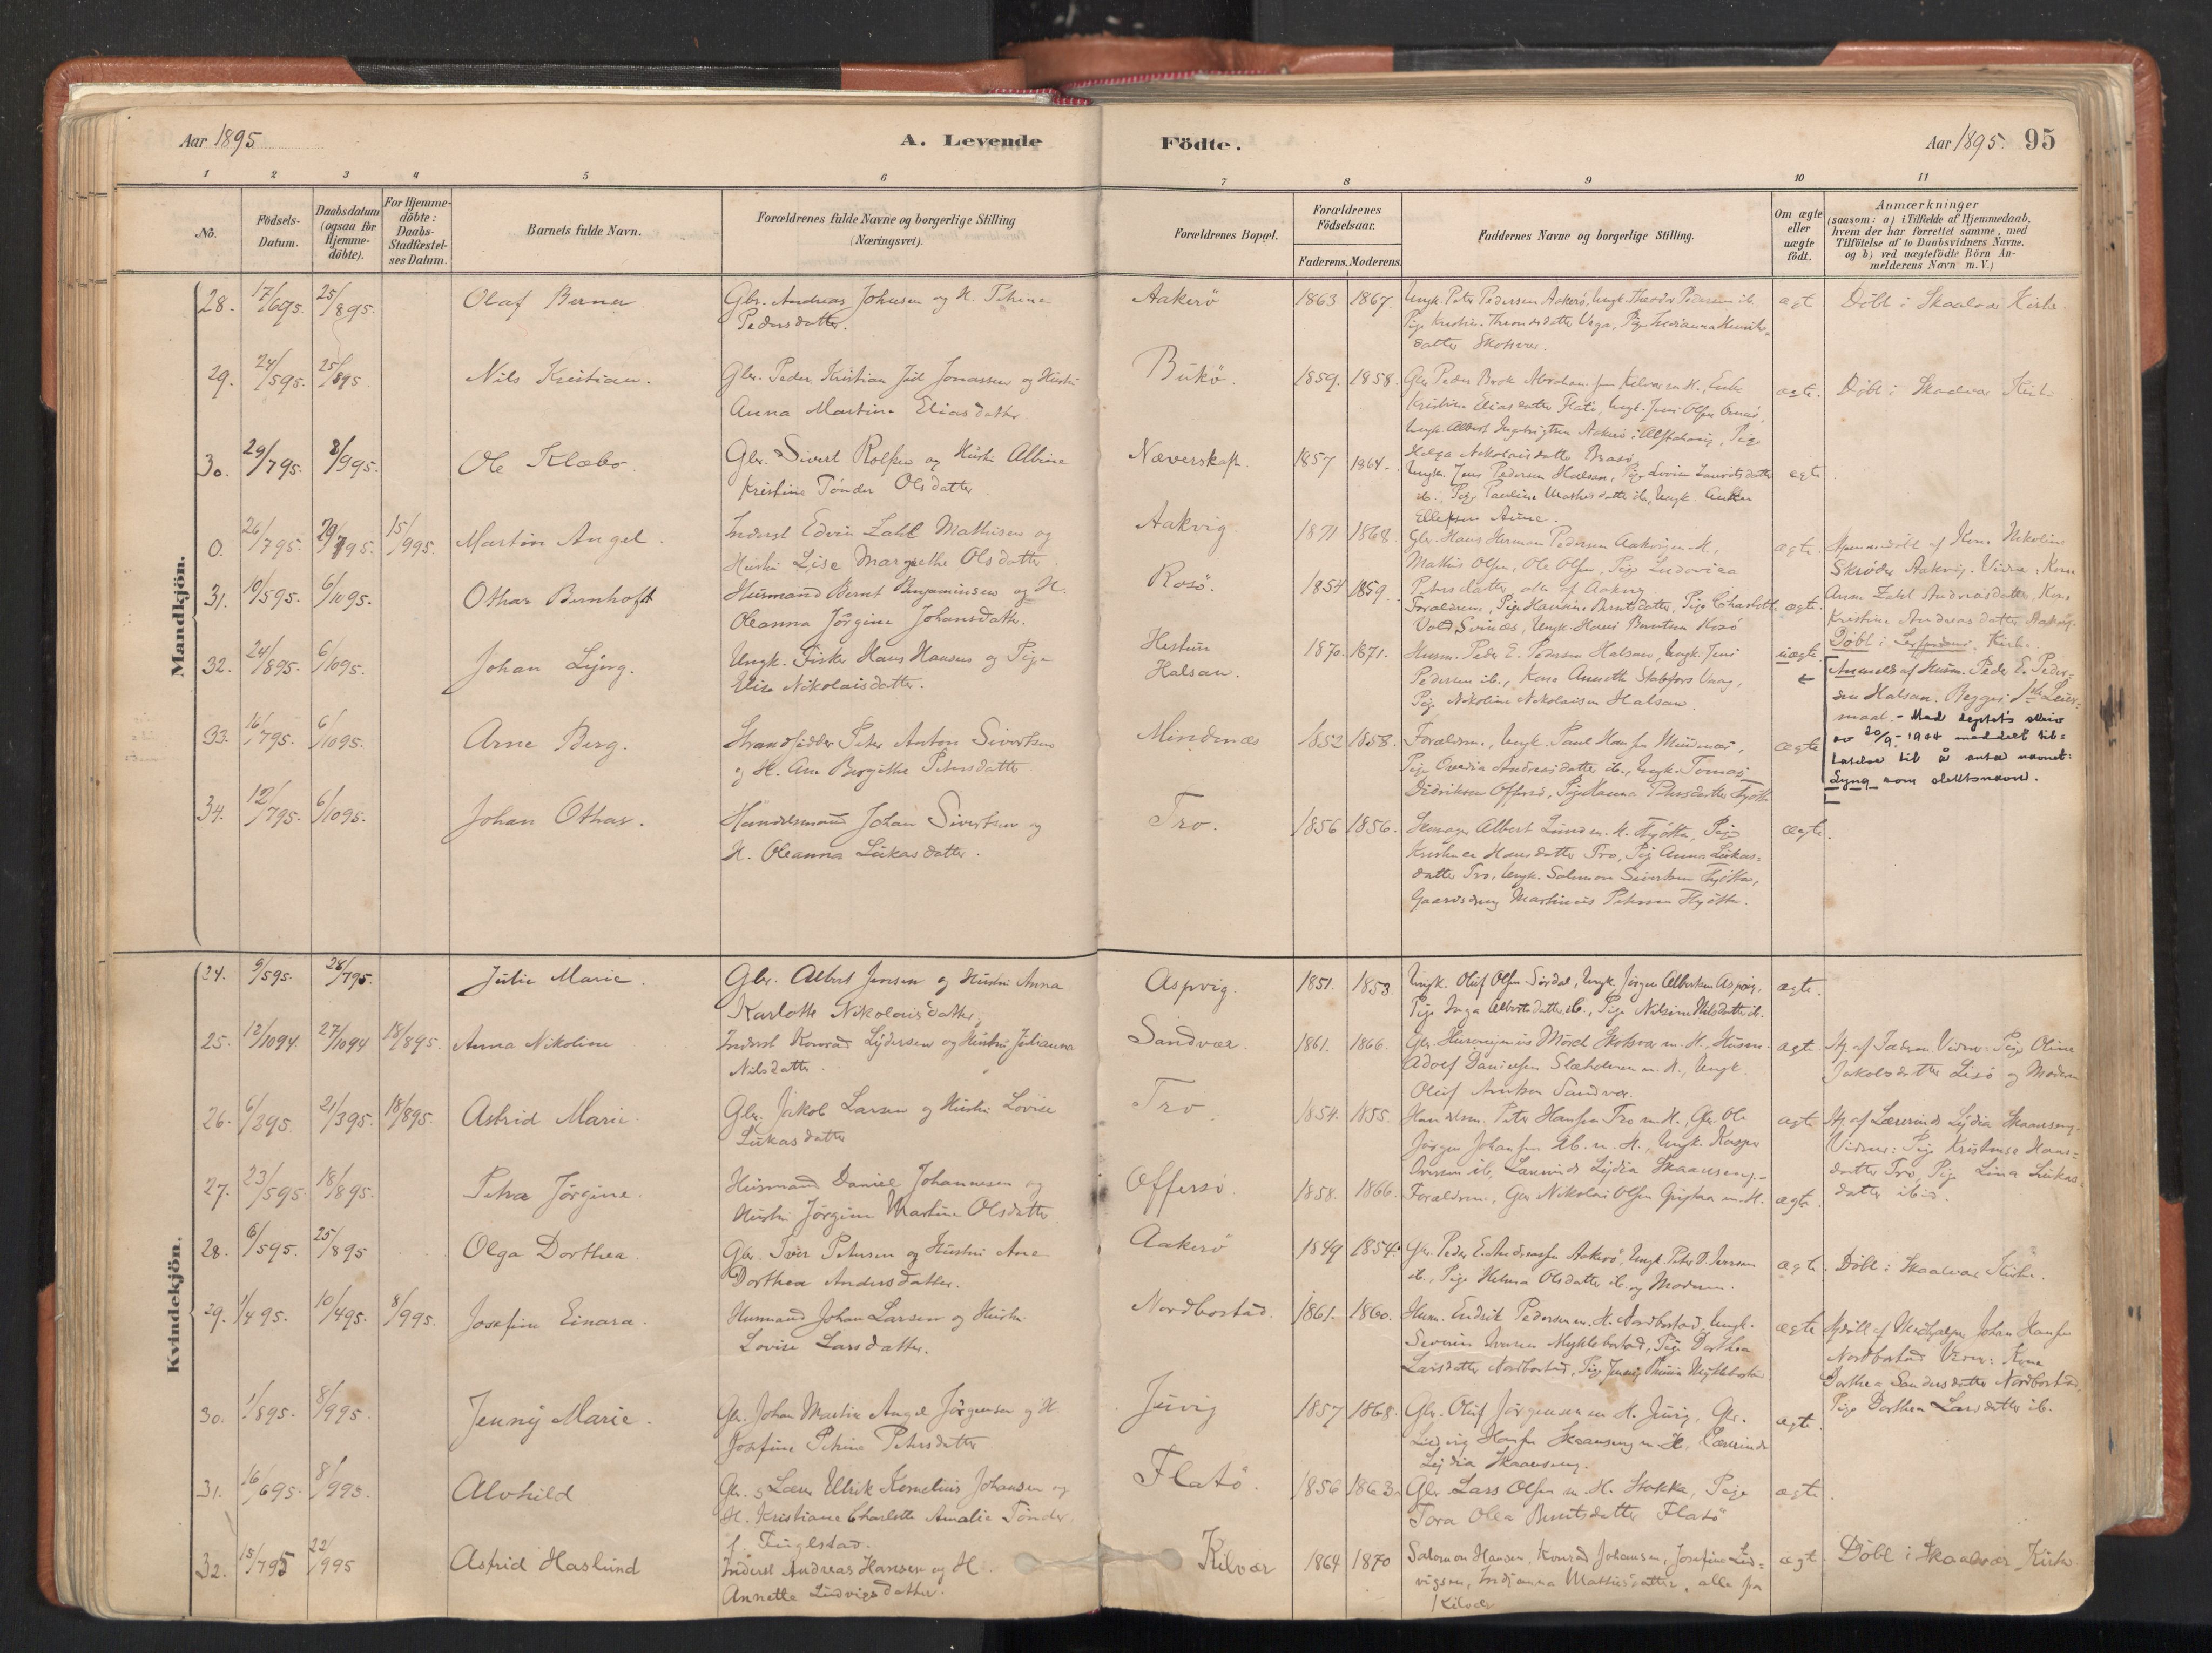 Aar 1895
A. Levende
Födte.
Aar 1895. 95
1 2 3 4 5 6 7 8 9 10 11
No.
Födsels-
Datum.
Daabsdatum
(ogsaa for
Hjemme-
döbte).
For Hjemme-
döbte:
Daabs-
Stadfæstel-
ses Datum.
Barnets fulde Navn.
Forældrenes fulde Navne og borgerlige Stilling
(Næringsvei).
Forældrenes Bopæl.
Forældrenes
Födselsaar.
Faderens. Moderens.
Faddernes Navne og borgerlige Stilling.
Om ægte
eller
uægte
födt.
Anmærkninger
(saasom: a) i Tilfælde af Hjemmedaab,
hvem der har forrettet samme, med
Tilföielse af to Daabsvidners Navne.
og b) ved uægtefödte Börn An-
melderens Navn m. V.)
Mandkjön.
28. 17/695. 25/895. Olaf Berner Gbr. Andreas Johnsen og H. Petrine
Pedersdatter.
Aakerö 1863 1867. Ungk. Peter Pedersen Aakerö, Ungk. Theodor Pedersen ib.
Pige Kristine Thronsdatter Vega, Pige
datter Skotsvær.
ægt. Döbt i Skaalvær Kirke.
29. 24/595. 25/895 Nils Kristian. Gbr. Peder Kristian Juel Jonassen og Hustru
Anna Martine Eliasdatter
Bukö. 1859. 1858. Gbr. Peder Brok Abrahamsen Kilvær m. H., Enke
Kristine Eliasdatter Flatö, Ungk. Jens Olsen
Ungk. Albert Ingebrigtsen Aakerö i Alstahaug, Pige
Helga Nikolaisdatter Brasö.
ægte. Döbt i Skaalvær Kirke
30. 29/795. 8/995. Ole Klæbo. Gbr. Sivert Rolfsen og Hustru Albrine
Kristine Tönder Olsdatter
Næverskaft. 1857 1864. Ungk. Jens Pedersen Halsan, Pige Lovise Lauritsdatter
ib., Pige Pauline Mathisdatter ib., Ungk. Anker
Ellefsen Aune.
ægte.
0. 26/795. 29/795. 15/995. Martin Angel. Inderst Edvin Zahl Mathisen og
Hustru Lise Margrethe Olsdatter
Aakvig. 1871 1868. Gbr. Hans Herman Pedersen Aakvigen m. H.,
Mathis Olsen, Ole Olsen, Pige Ludovica
Petersdatter, alle af Aakvig.
ægte. Hjemmedöbt af Kone Nikoline
Skröder Aakvig. Vidne: Kone
Anne Zahl Andreasdatter, Kone
Kristine Andreasdatter Aakvig.
31. 10/595. 6/1095. Othar Bernhoft Husmand Bernt Benjaminsen og H.
Oleanna Jörgine Johansdatter.
Rosö. 1854 1859. Forældrene, Pige Hansine Berntsdatter, Pige Charlotte
Vold Svinæs, Ungk. Hans Berntsen Rosö
ægte. Döbt i Kirke.
32. 24/895. 6/1095. Johan Lyng. Ungk. Fisker Hans Hansen og Pige
Elise Nikolaisdatter.
Hestun
Halsan.
1870. 1871. Husm. Peder E. Pedersen Halsan, Ungk. Jens
Pedersen ib., Kone Annette Stabfors Vaag,
Pige Nikoline Nikolaisen Halsan.
uægte
Anmeldt af Husm. Peder E. Peder-
sen Halsan. Begges 1ste Leier-
maal. - Med deptet's skriv
av 20/9-1944 meddelt til-
latelse til å anta navnet
Lyng som slektsnavn.
33. 16/795. 6/1095. Arne Berg. Strandsidder Peter Anton Sivertsen
og H. Ane Bergithe Petersdatter
Mindenæs 1852 1858. Forældrene, Ungk. Paul Hansen Mindenæs,
Pige Ovedia Andreasdatter ib., Ungk. Tomas
Didriksen Offersö, Pige Hanna Petersdatter Tjötta
ægte
34. 12/795. 6/1095. Johan Othar. Handelsmand Johan Sivertsen og
H. Oleanna Lukasdatter.
Tro. 1856 1856. Skomager Albert Lund m. H. Tjötta, Pige
Kristine Hansdatter Tro, Pige Anna Lukas-
datter Tro, Ungk. Salomon Sivertsen Tjötta,
Gaardsdreng Martinus Petersen Tjötta.
ægte.
Kvindekjön.
24. 9/595. 28/795. Julie Marie. Gbr. Albert Jensen og Hustru Anna
Karlotte Nikolaisdatter.
Aspvig. 1851. 1853. Ungk. Oluf Olsen Sördal, Ungk. Jörgen Albertsen Aspvig,
Pige Inga Albertsdatter ib., Pige Nilsine Nilsdatter ib.
ægte.
25. 12/1094. 27/1094 18/895. Anna Nikoline Inderst Konrad Lydersen og Hustru Johanna
Nilsdatter
Sandvær. 1861. 1866. Gbr. Hieronymus Mörch Skotsvær m. H., Husm.
Adolf Danielsen Slæholmen m. H., Ungk.
Oluf Arntsen Sandvær.
ægt. Hj. af Faderen. Vidner: Pige Oline
Jakobsdatter Lisö og Moderen
26. 6/295. 21/395. 18/895. Astrid Marie. Gbr. Jakob Larsen og Hustru Lovise
Lukasdatter
Tro 1854. 1855. Handelsm. Peter Hansen Tro m. H., Gbr. Ole
Jörgen Johansen ib. m. H., Ungk. Kasper
Iversen ib., Lærerinde Lydia Skaanseng.
ægte Hj. af Lærerinde Lydia Skaanseng.
Vidner: Pige Kristense Hans-
datter Tro, Pige Lina Lukas-
datter ibid.
27. 23/595. 18/895. Petra Jörgine. Husmand Daniel Johannesen og
Hustru Jörgine Martine Olsdatter
Offersö. 1858. 1866. Forældrene, Gbr Nikolai Olsen m. H.
ægte.
28. 6/595. 25/895 Olga Dorthea. Gbr. Iver Petersen og Hustru Ane
Dorthea Andersdatter.
Aakerö 1849 1854. Gbr. Peder E. Andreassen Aakerö, Ungk. Peter D. Iversen
ib., Pige Helma Olsdatter ib. og Moderen.
ægte. Döbt i Skaalvær Kirke.
29. 1/495. 10/495. 8/995. Josefine Einara. Husmand Johan Larsen og Hustru
Lovise Larsdatter.
Nordbostad. 1861. 1860. Husm. Endrik Pedersen m. H. Nordbostad, Ungk.
Severin Iversen Myklebostad, Pige Dorthea
Larsdatter Nordbostad, Pige Jensine Myklebostad
ægte Hjdöbt af Medhjælper Johan Hansen
Nordbostad Vidner: Kone
Dorthea Sandersdatter Nordbostad,
Pige Dorthea Larsdatter ib.
30. 1/895. 8/995. Jenny Marie. Gbr. Johan Martin Angel Jörgensen og H.
Josefine Petrine Petersdatter
Juvig 1857 1868. Gbr. Oluf Jörgensen m H. Juvig, Gbr.
Ludvig Hansen Skaanseng m. H., Lærerinde
Lydia Skaanseng.
ægte.
31. 16/695. 8/995. Alvhild Gbr. Ullrik Kornelius Johansen og
H. Kristiane Charlotte Amalie Tönder
f. Tinglstad.
Flatö. 1856 1863. Gbr Lars Olsen m. H. Stokka, Pige
Tora Olea Berntsdatter Flatö
ægte.
32. 15/795 22/995 Astrid Haslund Inderst Andreas Hansen og H.
Annette Ludvigsdatter.
Kilvær 1864 1870 Salomon Hansen, Konrad Johansen, Josefine Lud-
vigsen, Indianna Mathisdatter, alle fra
Kilvær
ægt. Döbt i Skaalvær Kirke